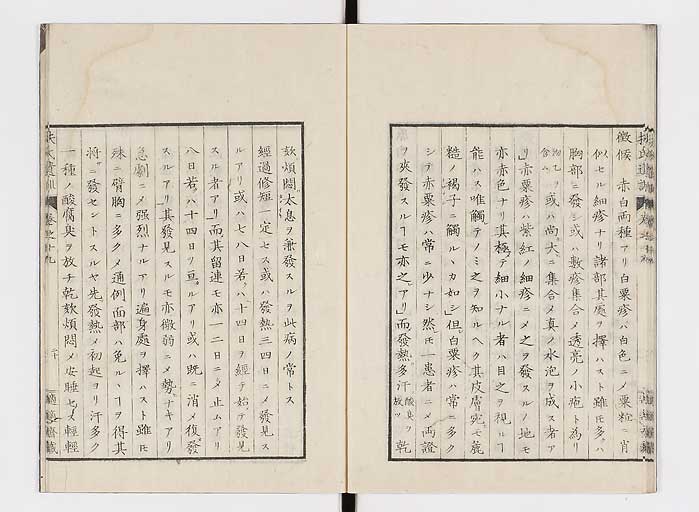 徴候 赤白両種アリ白粟疹ハ白色ニメ粟粒ニ肖
似セル細疹ナリ諸部其処ヲ擇ハスト雖モ多クハ
胸部ニ發シ或ハ數疹集合メ透亮ノ小疱ト為リ
或ハ尚大ニ集合メ真ノ水泡ヲ成ス者ア
リ赤粟疹ハ紫紅ノ細疹ニメ之ヲ發スルノ地モ
亦赤色ナリ其極テ細小ナル者ハ目之ヲ視ルヿ
能ハス唯觸テノミ之ヲ知ルヘク其皮膚宛モ麁
糙ノ褐子ニ觸ルヽカ如シ但白粟疹ハ常ニ多ク
シテ赤粟疹ハ常ニ少ナシ然𪜈一患者ニメ両證
ヲ夾發スルヿモ亦之アリ而發熱多汗 酸臭ヲ放ツ 乾
欬煩悶太息ヲ兼發スルヲ此病ノ常トス
經過修短一定セス或ハ發熱三四日ニメ發見ス
ルアリ或ハ七八日若クハ十四日ヲ經テ始テ發見
スル者アリ而其留連モ亦一二日ニメ止ムアリ
八日若クハ十四日ニ亘ルアリ或ハ既ニ消メ復發
スルアリ其發見スルモ亦微弱ニメ勢ナキアリ
急劇ニメ強烈ナルアリ遍身處ヲ擇ハスト雖𪜈
殊ニ臂胸ニ多クメ通例面部ハ免ルヽヿヲ得其
將ニ發セントスルヤ先發熱メ初起ヨリ汗多ク
一種ノ酸腐臭ヲ放チ乾欬煩悶メ安睡セス輕輕
扶氏遺訓 巻之十九